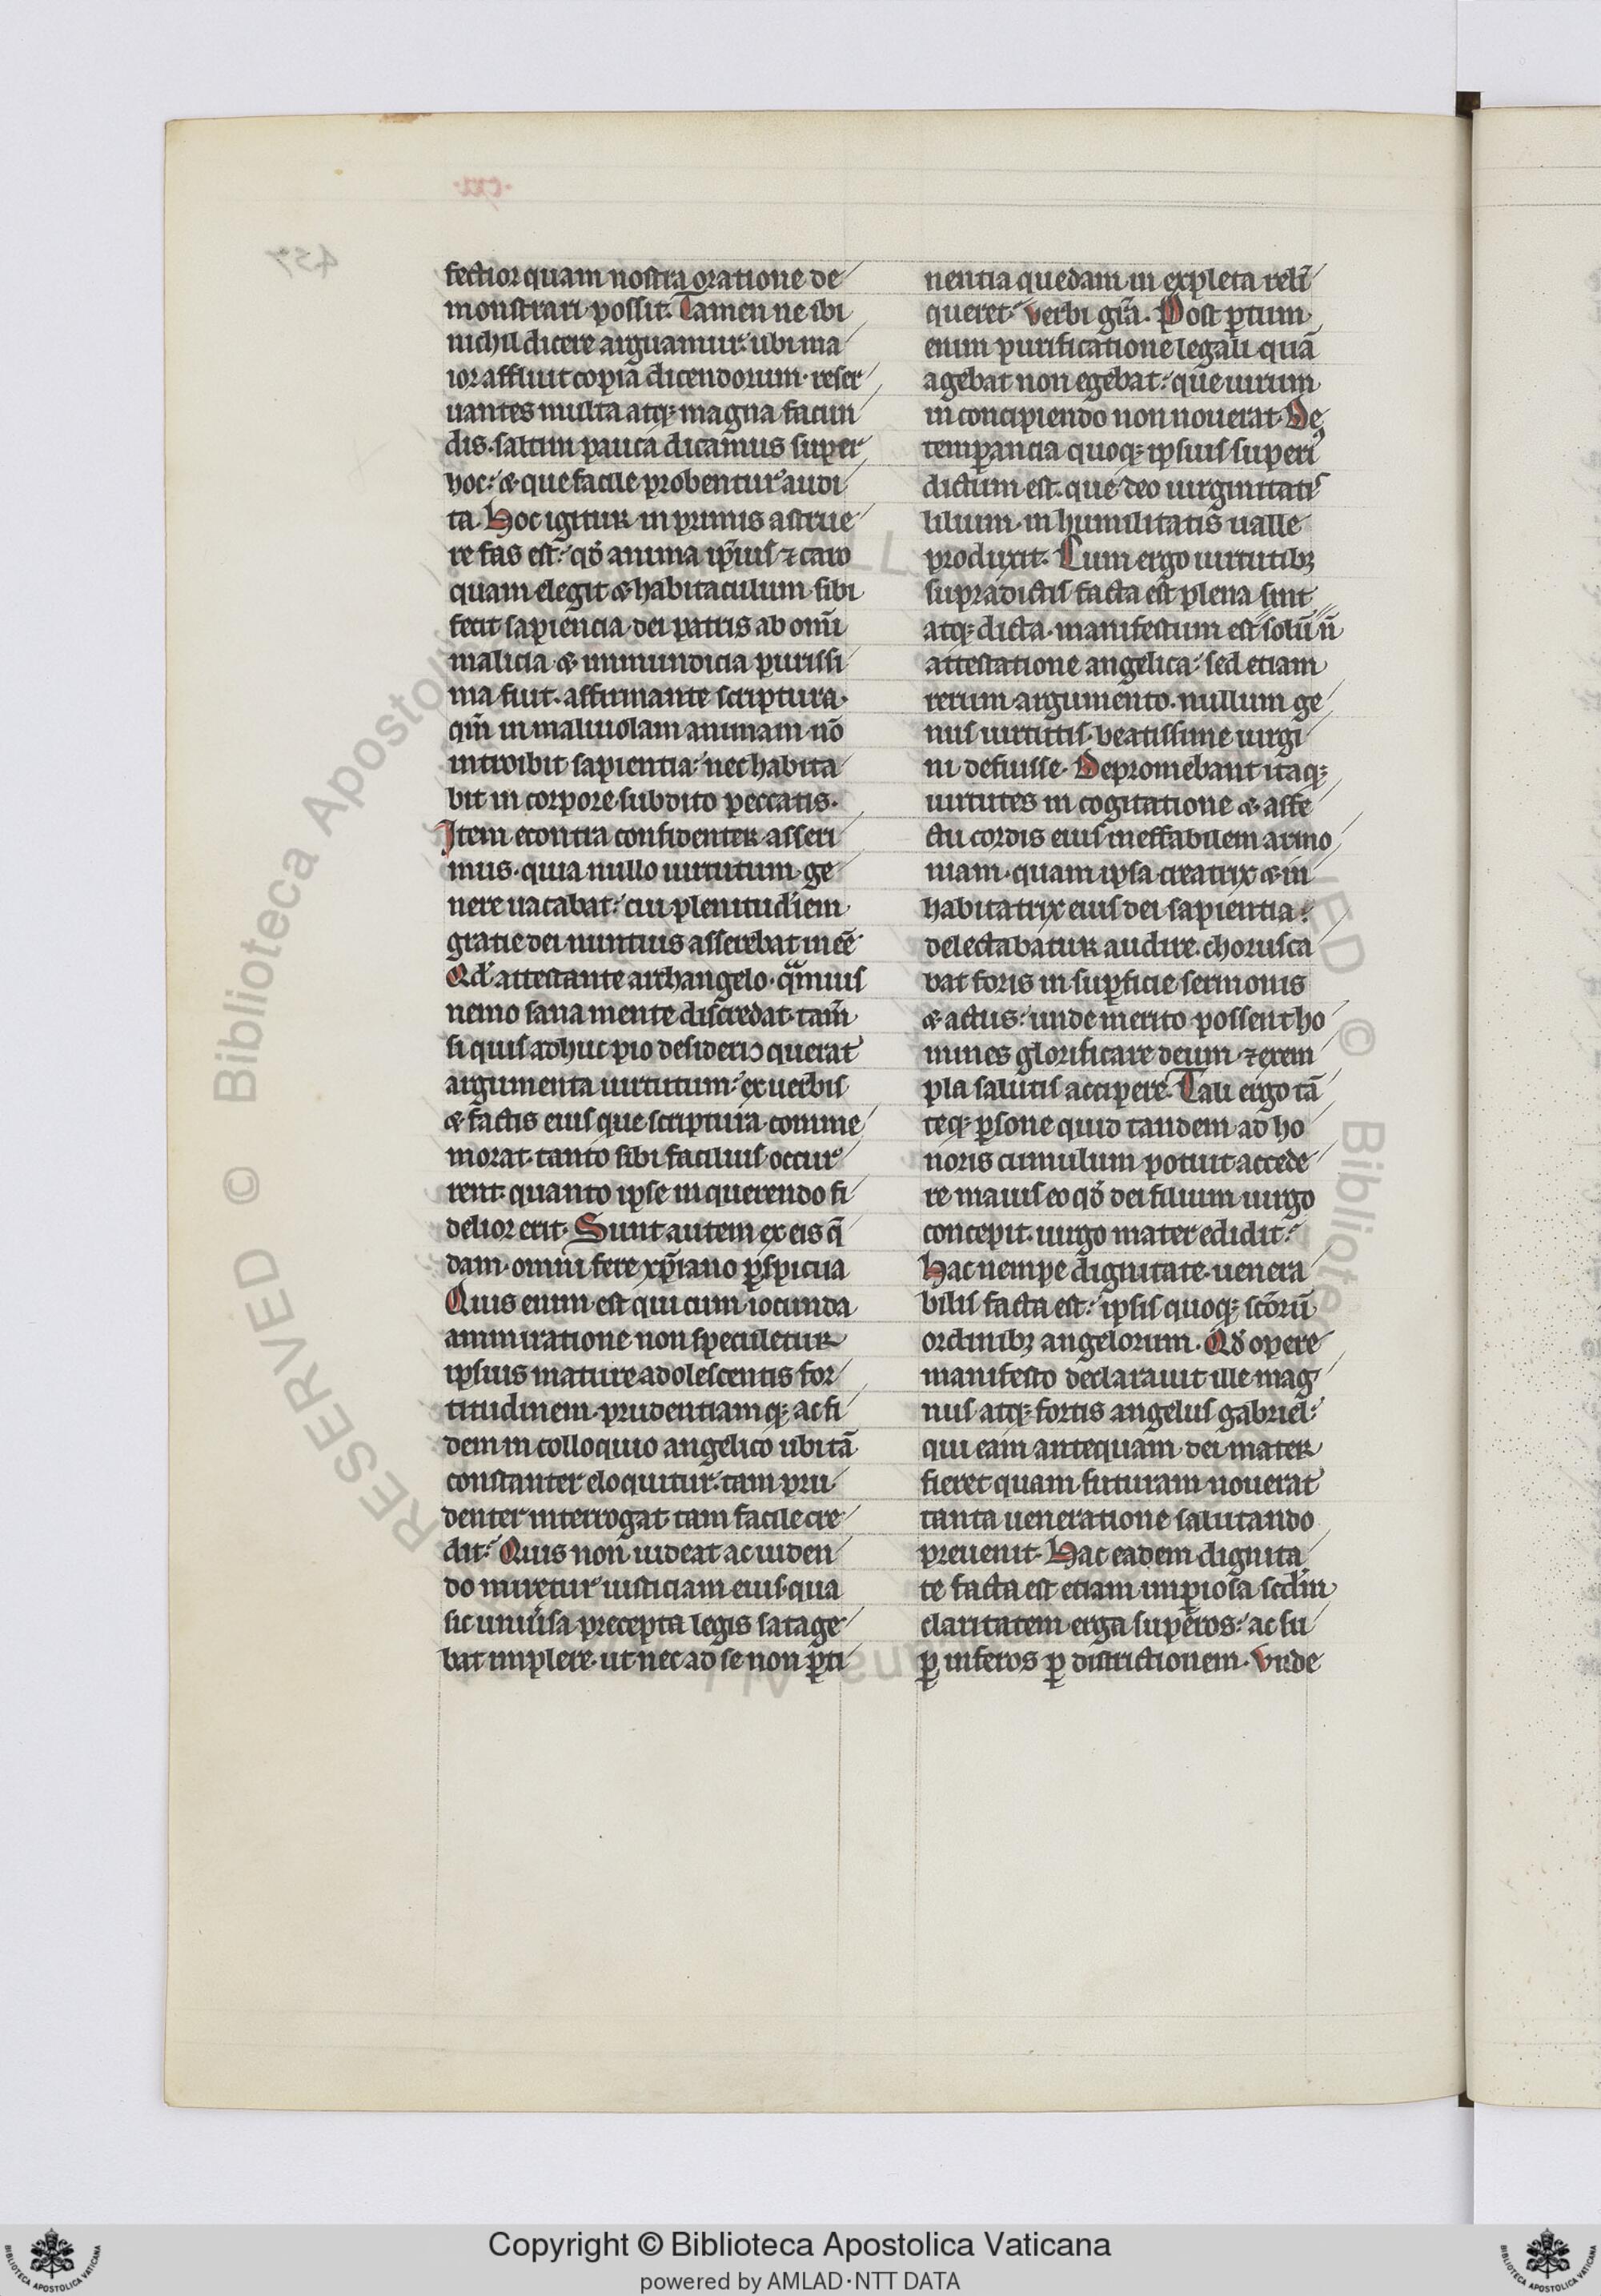 fectior quam nostra oratione de
monstrari possit. Tamen ne ibi
nichil dicere arguamur: ubi ma
ior affluit copia dicendorum. reser
uantes multa atq; magna facun
dis. saltim pauca dicamus super
hoc: & que facile probentur audi
ta. Hoc igitur in primis astrue
re fas est: qđ anima ip̄ius ⁊ caro
quam elegit & habitaculum sibi
fecit sapiencia dei patris ab om̄i
malicia & inmundicia purissi
ma fuit. affirmante scriptura.
qm̄ in maliuolam animam nō
introibit sapientia: nec habita
bit in corpore subdito peccatis.
Item econtra confidenter asseri
mus. quia nullo uirtutum ge
nere uacabat: cui plenitudinem
gratie dei nuntius asserebat inēē
Qđ attestante archangelo. qͣmuis
nemo sana mente discredat. tam̄
si quis adhuc pio desiderio querat
argumenta uirtutum: ex uerbis
& factis eius que scriptura comme
morat. tanto sibi facilius occur
rent: quanto ipse in querendo fi
delior erit. Sunt autem ex eis q̄
dam omni fere xp̄iano ꝑspicua
Quis enim est qui cum iocunda
ammiratione non speculetur
ipsius mature adolescentis for
titudinem. prudentiamq; ac fi
dem in colloquio angelico ubi tā
constanter eloquitur: tam pru
denter interrogat tam facile cre
dit: Quis non uideat ac uiden
do miretur iusticiam eius qua
sic uniu̓sa precepta legis satage
bat implere. ut nec ad se non ꝑti
nentia quedam in expleta reli
queret: verbi gr̄a. Post ꝑtum
enim purificatione legali quā
agebat non egebat: que uirum
in concipiendo non nouerat. De
temꝑancia quoq; ipsius superi᾽
dictum est. que deo uirginitatis
lilium in humilitatis ualle
produxit. Cum ergo uirtutib;
supradictis facta est plena sint
atq; dicta. manifestum est solū n̄
attestatione angelica: sed etiam
rerum argumento. nullum ge
nus uirtutis. beatissime uirgi
ni defuisse. Depromebant itaq;
uirtutes in cogitatione & affe
ctu cordis eius ineffabilem armo
niam. quam ipsa creatrix & in
habitatrix eius dei sapientia:
delectabatur audire. chorusca
bat foris in suꝑficie sermonis
& actus: unde merito possent ho
mines glorificare deum ⁊ exem
pla salutis accipere. Tali ergo tā
teq; ꝑsone quid tandem ad ho
noris cumulum potuit accede
re maius eo qđ dei filium uirgo
concepit. uirgo mater edidit:
Hac nempe dignitate. uenera
bilis facta est: ipsis quoq; sc̄orū
ordinib; angelorum. Qđ opere
manifesto declarauit ille mag
nus atq; fortis angelus gabriel:
qui eam antequam dei mater
fieret quam futuram nouerat
tanta ueneratione salutando
preuenit. Hac eadem dignita
te facta est etiam imꝑiosa scđm
claritatem erga suꝑeros: ac su
ꝑ inferos ꝑ districtionem. Vnde
Copyright © Biblioteca Apostolica Vaticana
powered by AMLAD·NTT DATA